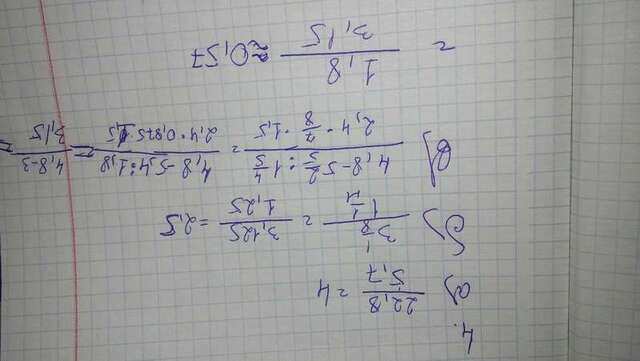 4.
а) 22,8/5,7 = 4
б) 3 1/8 / 1 1/4 = 3,125/1,25 = 2,5
в) 4,8-5 2/5:1 4/5 / 2,4·7/8·1,5 = 4,8-5,4:1,8 / 2,4·0,875·1,5 = 4,8-3 / 3,15 =
= 1,8/3,15 ≈0,57